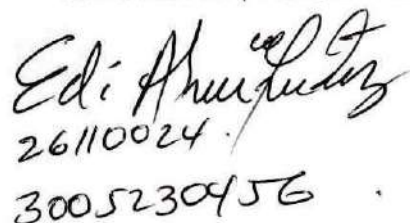 Edi
26110024.
3005230456.